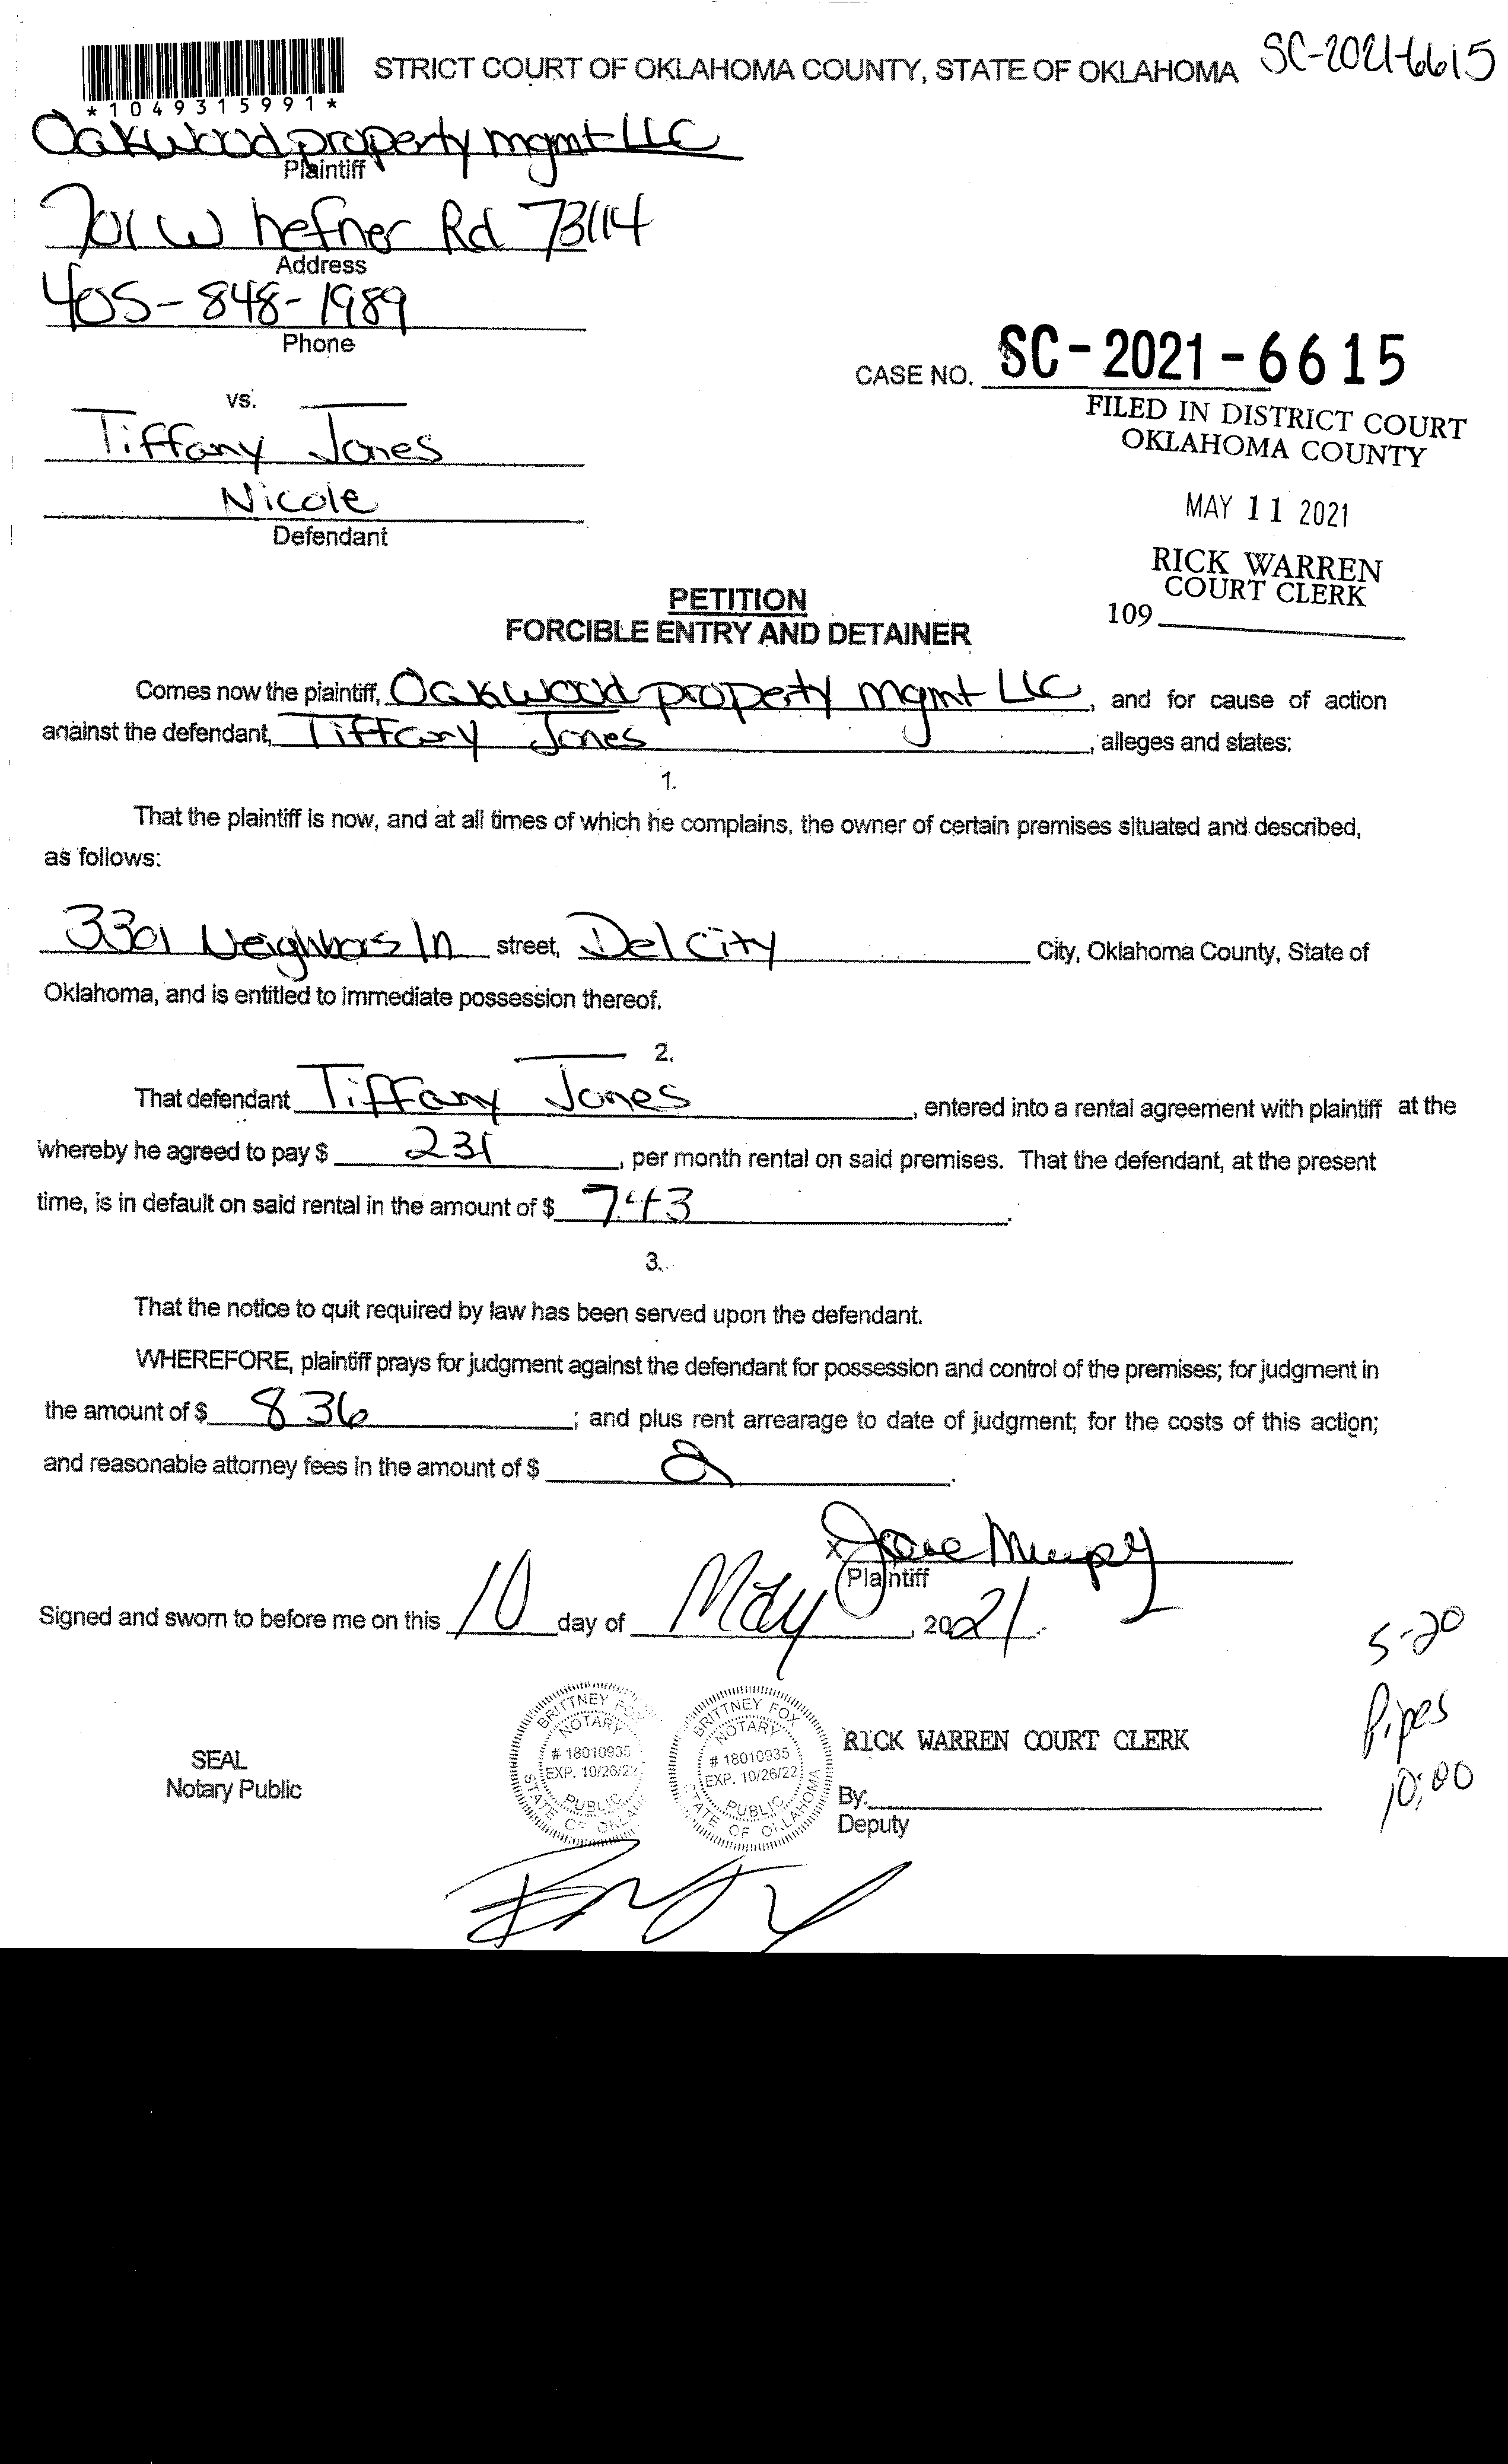 STRICT COURT OF OKLAHOMA COUNTY, STATE OF OKLAHOMA SC-2021-6615
*1049315991*
Oakwood property mgmt LLC
Plaintiff
701 W hefner Rd 73114
Address
405-848-1989
Phone
CASE NO. SC-2021-6615
FILED IN DISTRICT COURT
OKLAHOMA COUNTY
vs.
Tiffany Jones
Nicole
Defendant
MAY 11 2021
RICK WARREN
COURT CLERK
109
PETITION
FORCIBLE ENTRY AND DETAINER
Comes now the plaintiff, Oakwood property mgmt LLC, and for cause of action
against the defendant, Tiffany Jones, alleges and states:
1.
That the plaintiff is now, and at all times of which he complains, the owner of certain premises situated and described,
as follows:
3301 Neighbors ln street, Del City City, Oklahoma County, State of
Oklahoma, and is entitled to immediate possession thereof.
2.
That defendant Tiffany Jones, entered into a rental agreement with plaintiff at the
whereby he agreed to pay $ 231, per month rental on said premises. That the defendant, at the present
time, is in default on said rental in the amount of $ 743.
3.
That the notice to quit required by law has been served upon the defendant.
WHEREFORE, plaintiff prays for judgment against the defendant for possession and control of the premises; for judgment in
the amount of $ 836; and plus rent arrearage to date of judgment; for the costs of this action;
and reasonable attorney fees in the amount of $ .
X
Plaintiff
Signed and sworn to before me on this 10 day of May, 2021.
5-20
Pipes
10:00
BRITTNEY FOX
NOTARY
# 18010935
EXP. 10/26/22
PUBLIC
STATE OF OKLA
BRITTNEY FOX
NOTARY
# 18010935
EXP. 10/26/22
PUBLIC
STATE OF OKLAHOMA
SEAL
Notary Public
RICK WARREN COURT CLERK
By:
Deputy